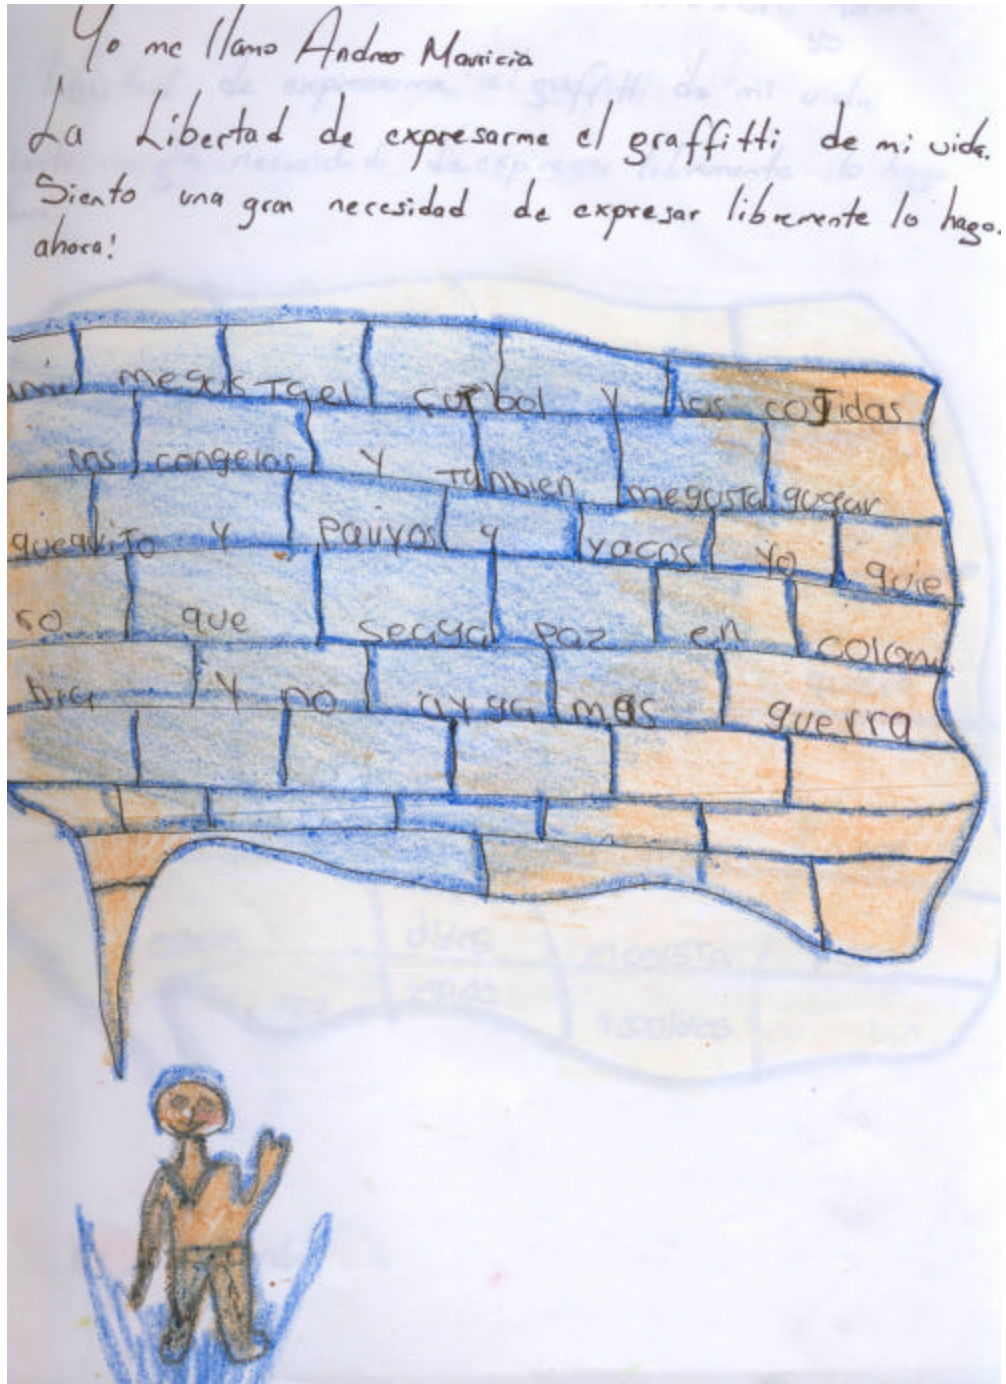 Yo me llamo Andres Mauricio
La Libertad de expresarme el graffitti de mi vida.
Siento una gran necesidad de expresar libremente lo hago.
ahora!
ami me gus Ta el futbol y las cogidas
las congelas y Tanbien me gusta gugar
quequito y pauyos y yacos yo quie
ro que seaya paz en colom
bia y no ayga mas guerra